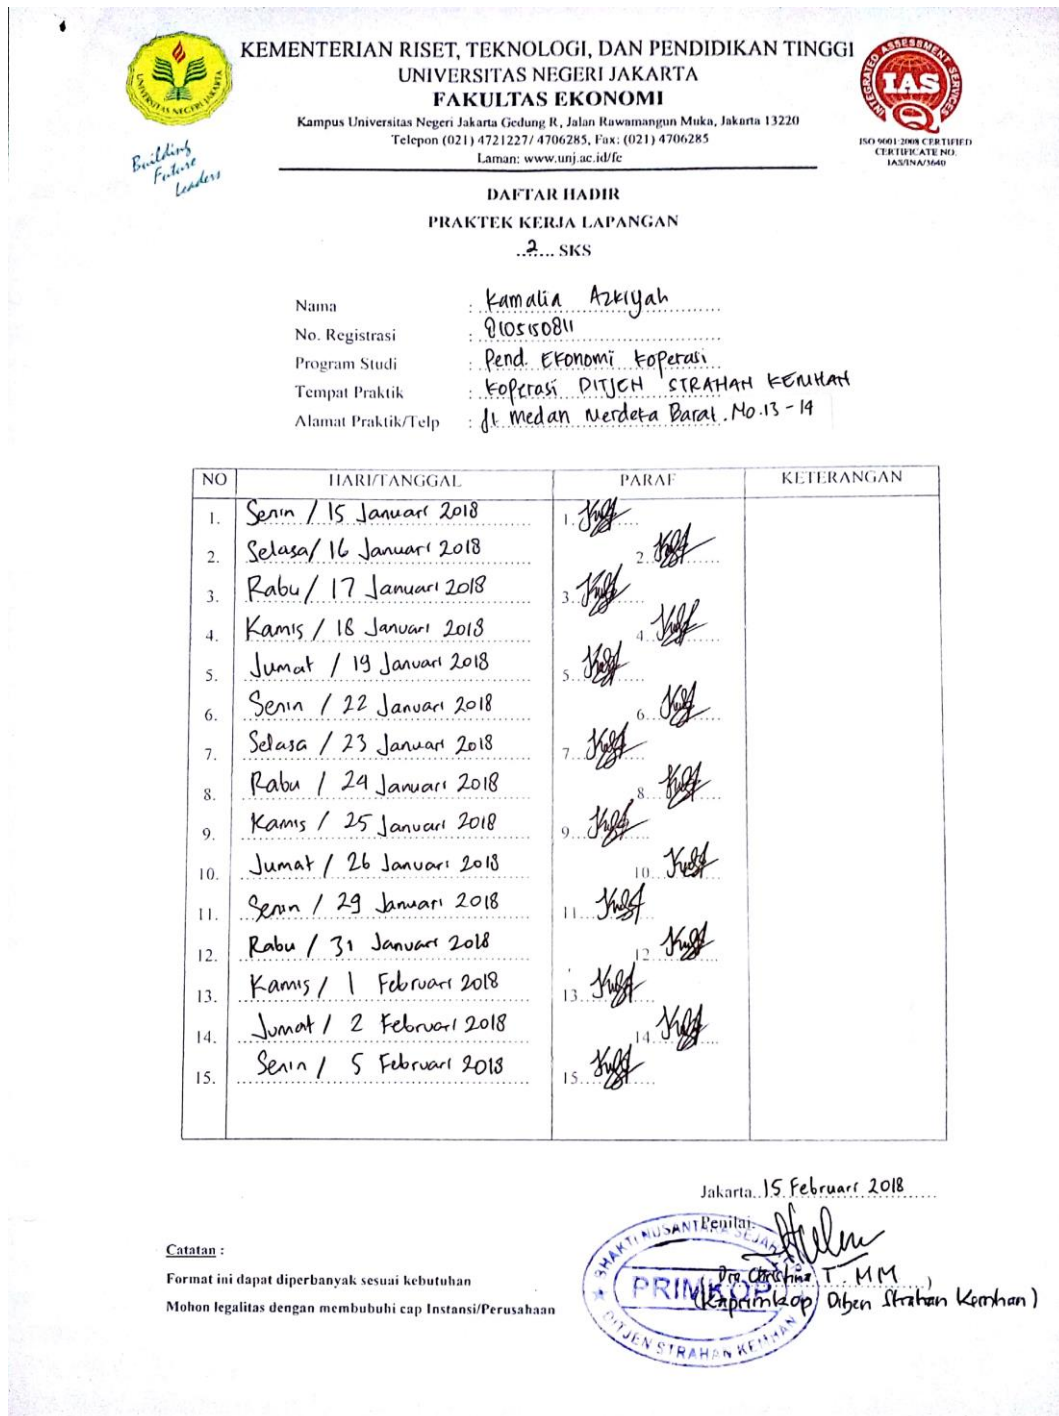 KEMENTERIAN RISET, TEKNOLOGI, DAN PENDIDIKAN TINGGI
UNIVERSITAS NEGERI JAKARTA
FAKULTAS EKONOMI
Kampus Universitas Negeri Jakarta Gedung R, Jalan Rawamangun Muka, Jakarta 13220
Telepon (021) 4721227/ 4706285, Fax: (021) 4706285
Laman: www.unj.ac.id/fe
UNIVERSITAS NEGERI JAKARTA
Building
Future
Leaders
INTEGRATED ASSESSMENT SERVICES
IAS
ISO 9001:2008 CERTIFIED
CERTIFICATE NO.
IAS/INA/3640
DAFTAR HADIR
PRAKTEK KERJA LAPANGAN
..2.... SKS
Nama : Kamalia Azkiyah
No. Registrasi : 8105150811
Program Studi : Pend. Ekonomi Koperasi
Tempat Praktik : Koperasi DITJEN STRAHAN KEMHAN
Alamat Praktik/Telp : Jl. Medan Merdeka Barat. No.13-14
NO HARI/TANGGAL PARAF KETERANGAN
1. Senin / 15 Januari 2018 1.
2. Selasa/ 16 Januari 2018 2.
3. Rabu/ 17 Januari 2018 3.
4. Kamis / 18 Januari 2018 4.
5. Jumat / 19 Januari 2018 5.
6. Senin / 22 Januari 2018 6.
7. Selasa / 23 Januari 2018 7.
8. Rabu / 24 Januari 2018 8.
9. Kamis / 25 Januari 2018 9.
10. Jumat / 26 Januari 2018 10.
11. Senin / 29 Januari 2018 11.
12. Rabu / 31 Januari 2018 12.
13. Kamis / 1 Februari 2018 13.
14. Jumat / 2 Februari 2018 14.
15. Senin / 5 Februari 2018 15.
Jakarta, 15 Februari 2018
Penilai,
BHAKTI NUSANTARA SEJAHTERA
PRIMKOP
DITJEN STRAHAN KEMHAN
Dra. Christina T. MM
(Kaprimkop Ditjen Strahan Kemhan)
Catatan :
Format ini dapat diperbanyak sesuai kebutuhan
Mohon legalitas dengan membubuhi cap Instansi/Perusahaan